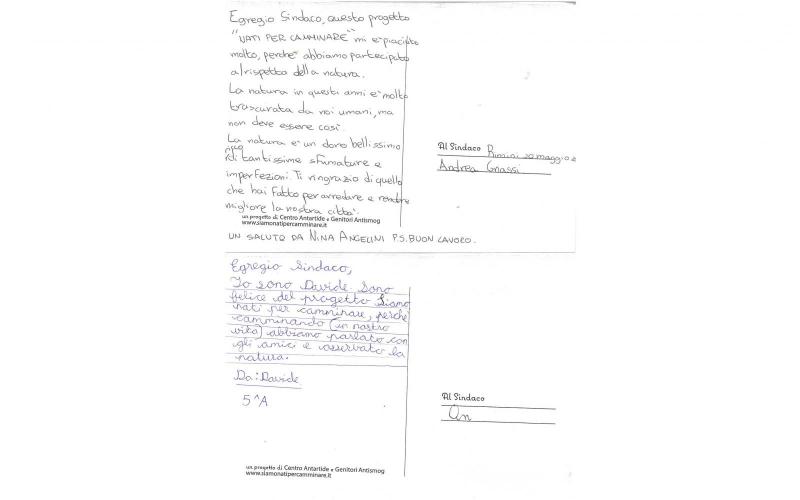 Egregio Sindaco, questo progetto
"NATI PER CAMMINARE" mi è piaciuto
molto, perchè abbiamo partecipato
al rispetto della natura.
La natura in questi anni è molto
trascurata da noi umani, ma
non deve essere così.
La natura è un dono bellissimo
ricco
di tantissime sfumature e
imperfezioni. Ti ringrazio di quello
che hai fatto per arredare e rendere
migliore la nostra città.
un progetto di Centro Antartide e Genitori Antismog
www.siamonatipercamminare.it
UN SALUTO DA NINA ANGELINI P.S. BUON LAVORO.
Al Sindaco Rimini 20 maggio
Andrea Gnassi
Egregio Sindaco,
Io sono Davide. Sono
felice del progetto Siamo
nati per camminare, perchè
camminando (in nostro
vita) abbiamo parlato con
gli amici e osservato la
natura.
Da: Davide
5^A
Al Sindaco
An
un progetto di Centro Antartide e Genitori Antismog
www.siamonatipercamminare.it